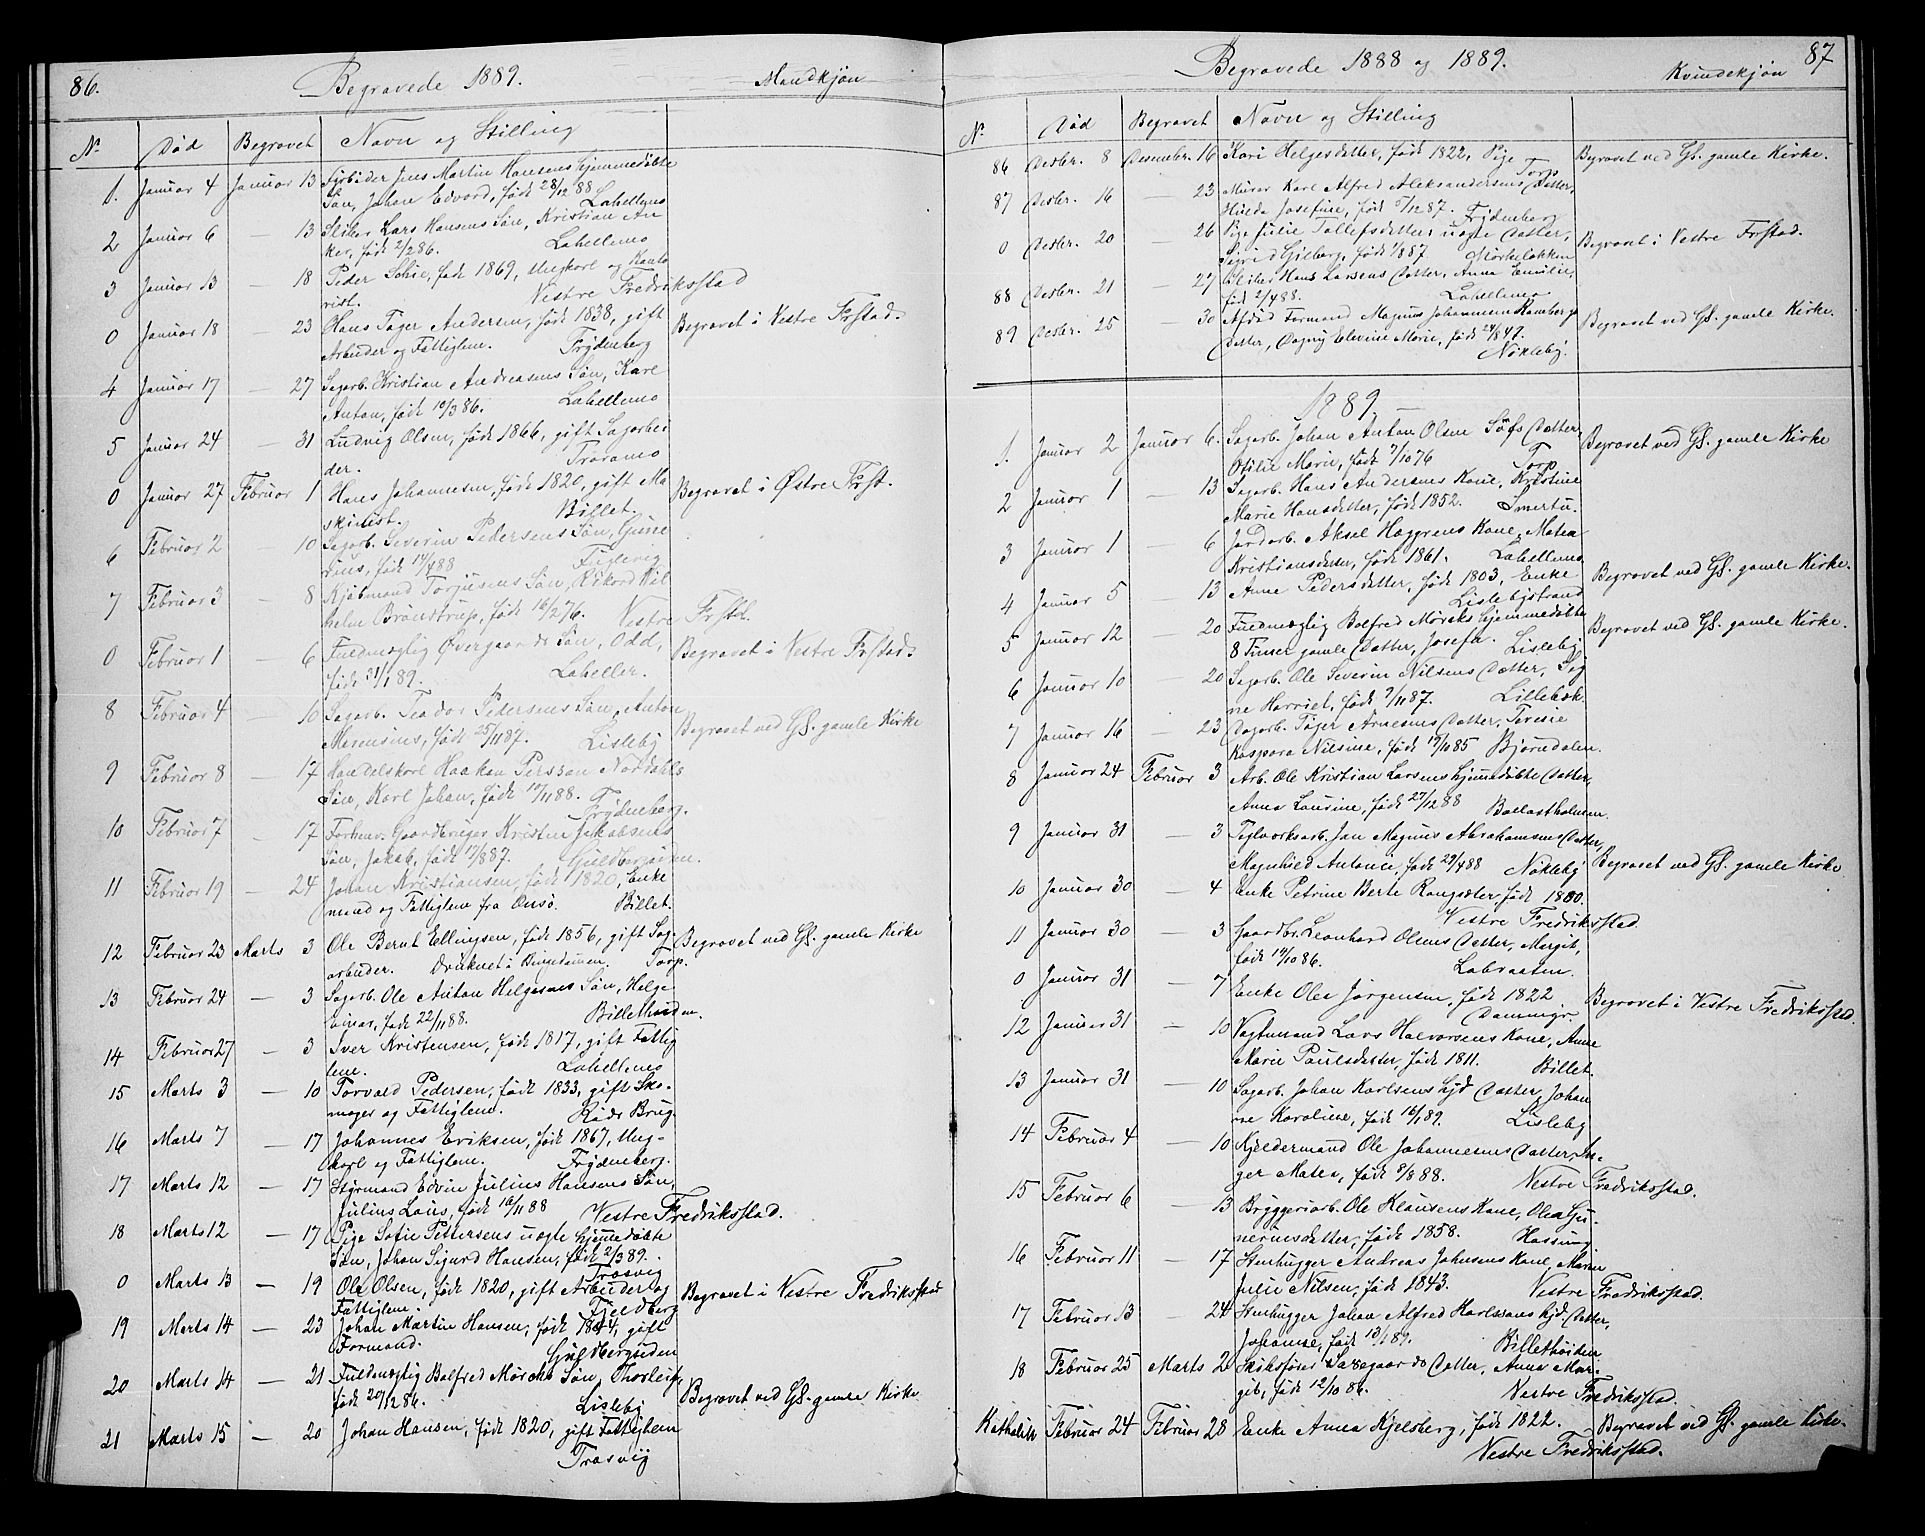 86.
Begravede 1889.
Mandkjøn
No
Død
Begravet
Navn og Stilling
1. Januar 4 Januar 13 Jens Martin Hansens hjemmedøbte
Søn, Johan Edvard, født 28/12 88. Lahellemo
2 Januar 6 — 13 Sliber Lars Hansens Søn, Kristian An
ker, født 2/2 86. Lahellemo
3 Januar 13 — 18 Peder Schie, født 1869, Ungkarl og Konto
rist. Vestre Fredriksstad
0 Januar 18 — 23 Hans Tøger Andersen, født 1838, gift Begravet i Vestre Frstad.
Arbeider og Fattiglem. Frydenberg
4 Januar 17 — 27 Sagarb. Kristian Andreasens Søn, Karl
Anton, født 10/3 86. Lahellemo
5 Januar 24 — 31 Ludvig Olsen, født 1866, gift Sagarbei
der. Traramo
0 Januar 27 Februar 1 Hans Johannesen, født 1820, gift Ma Begravet i Østre Frst.
skinist. Billet.
6 Februar 2 — 10 Sagarb. Severin Pedersens Søn, Gune
rius, født 14/4 88 Fuglevig
7 Februar 3 — 8 Kjøbmand Torjusens Søn, Rikard Vil
helm Brønstrup, født 16/2 76. Vestre Frstd.
0 Februar 1 — 6 Fuldmægtig Øvergaards Søn, Odd, Begravet i Vestre Frstad.
født 31/1 89. Laheller.
8 Februar 4 — 10 Sagarb. Teodor Pedersens Søn, Anton
Marensius, født 25/11 87. Lisleby Begravet ved Gl. gamle Kirke
9 Februar 8 — 17 Handelskarl Haakan Persson Nordahls
Søn, Karl Johan, født 17/11 88. Frydenberg.
10 Februar 7 — 17 Forhenv. Gaardbruger Kristen Jakobsens
Søn, Jakob, født 17/8 87. Guldbergsien.
11 Februar 19 — 24 Johan Kristiansen, født 1820, Enke
mand og Fattiglem fra Onsø. Billet.
12 Februar 23 Marts 3 Ole Bernt Ellingsen, født 1856, gift Sag- Begravet ved Gl. gamle Kirke
arbeider. Druknet i Torp.
13 Februar 24 — 3 Sagarb. Ole Anton Helgesens Søn, Helge
Einar, født 22/11 88. Billethøiden.
14 Februar 27 — 3 Iver Kristensen, født 1817, gift Fattig
lem. Lahellemo
15 Marts 3 — 10 Torvald Pedersen, født 1833, gift Sko-
mager og Fattiglem. Råds Brug.
16 Marts 7 — 17 Johannes Eriksen, født 1867, Ung-
karl og Fattiglem. Frydenberg.
17 Marts 12 — 17 Styrmand Edvin Julius Hansens Søn,
Julius Laus, født 16/11 88 Vestre Fredriksstad.
18 Marts 12 — 17 Pige Sofie Pettersens uægte hjemmedøbte
Søn, Johan Sigurd Hansen, født 2/3 89. Trosvig
0 Marts 13 — 19 Ole Olsen, født 1820, gift Arbeider og Begravet i Vestre Fredriksstad
Fattiglem. Fjeldberg
19 Marts 14 — 23 Johan Martin Hansen, født 1844, gift
Formand. Guldbergsiden
20 Marts 14 — 21 Fuldmægtig Bolfred Mörchs Søn, Thorleif,
født 20/12 86. Lisleby Begravet ved Gl. gamle Kirke.
21 Marts 15 — 20 Johan Hansen, født 1820, gift Fattiglem
Trosvig
Begravede 1888 og 1889.
Kvindekjøn
87
No
Død
Begravet
Navn og Stilling
86 Desbr. 8 Desembr. 16 Kari Helgesdatter, født 1822, Pige Begravet ved Gl. gamle Kirke.
Torp
87 Desbr. 16 — 23 Murer Karl Alfred Aleksandersens Datter,
Hulda Josefine, født 5/12 87. Frydenberg
0 Desbr. 20 — 26 Pige Julie Tollefsdatters uægte Datter, Begravet i Vestre Frstad.
Sigrid Gilberg, født 1/8 87 Mørkeløkken
88 Desbr. 21 — 27 Sliber Hans Larsens Datter, Anna Emilie,
født 2/4 88. Lahellemo
89 Desbr. 25 — 30 Afdød Formand Magnus Johannesen Rambergs Begravet ved Gl. gamle Kirke.
Datter, Dagny Elevine Marie, født 24/8 47.
Nøkleby.
1889
1. Januar 2 Januar 6. Sagarb. Johan Anton Olsen Datter, Begravet ved Gl. gamle Kirke
Otilie Marie, født 7/10 76 Torp
2 Januar 1 — 13 Sagarb. Hans Andersens Kone, Kristine
Marie Hansdatter, født 1852. Smertu.
3 Januar 1 — 6 Jordarb. Aksel Haggrens Kone, Matea
Kristiansdatter, født 1861. Lahellemo
4 Januar 5 — 13 Anne Pedersdatter, født 1803, Enke Begravet ved Gl. gamle Kirke.
Lislebystrand
5 Januar 12 — 20 Fuldmægtig Bolfred Mörchs hjemmedøbte Begravet ved Gl. gamle Kirke.
8 Timer gamle Datter, Josefa. Lisleby
6 Januar 10 — 20 Sagarb. Ole Severin Nilsens Datter, Sig
ne Harriet, født 9/11 87. Lillebæk
7 Januar 16 — 23 Dagarb. Tøger Arnesens Datter, Teresie
Kaspara Nilsine, født 19/10 85 Bjørndalen.
8 Januar 24 Februar 3 Arb. Ole Kristian Larsens hjemmedøbte Datter,
Anna Laurine, født 27/12 88 Ballastholmen.
9 Januar 31 — 3 Teglværksarb. Jan Magnus Abrahamsens Datter,
Magnhild Antonie, født 29/4 88 Nøkleby Begravet ved Gl. gamle Kirke
10 Januar 30 — 4 Enke Petrine Berte Rangsæter, født 1800.
Vestre Fredriksstad.
11 Januar 30 — 3 Gaardbr. Leonhard Olsens Datter, Margit,
født 14/10 86. Labraaten.
0 Januar 31 — 7 Enke Olea Jørgensen, født 1822 Begravet i Vestre Fredriksstad.
Damminge.
12 Januar 31 — 10 Vagtmand Lars Halvorsens Kone, Anne
Marie Paulsdatter, født 1811. Billet.
13 Januar 31 — 10 Sagarb. Johan Karlsens hjd Datter, Johan
ne Karoline, født 16/1 89. Lisleby
14 Februar 4 — 10 Kjeldermand Ole Johannesens Datter, In-
ger Matea, født 8/8 88. Vestre Fredriksstad.
15 Februar 6 — 13 Bryggeriarb. Ole Klausens Kone, Olea Gu-
neriusdatter, født 1858. Hassing.
16 Februar 11 — 17 Stenhugger Andreas Johnsens Kone, Maren
Julie Nilsen, født 1843. Vestre Fredriksstad.
17 Februar 13 — 24 Stenhugger Johan Alfred Karlssons hjd. Datter,
Johanne, født 13/1 89. Billethøiden
18 Februar 25 Marts 2 Skibsfører Saxegaards Datter, Anna Mar-
git, født 12/10 86. Vestre Fredriksstad.
Katholik Februar 24 Februar 28 Enke Anna Kjelsberg, født 1822. Begravet ved Gl. gamle Kirke.
Vestre Fredriksstad.